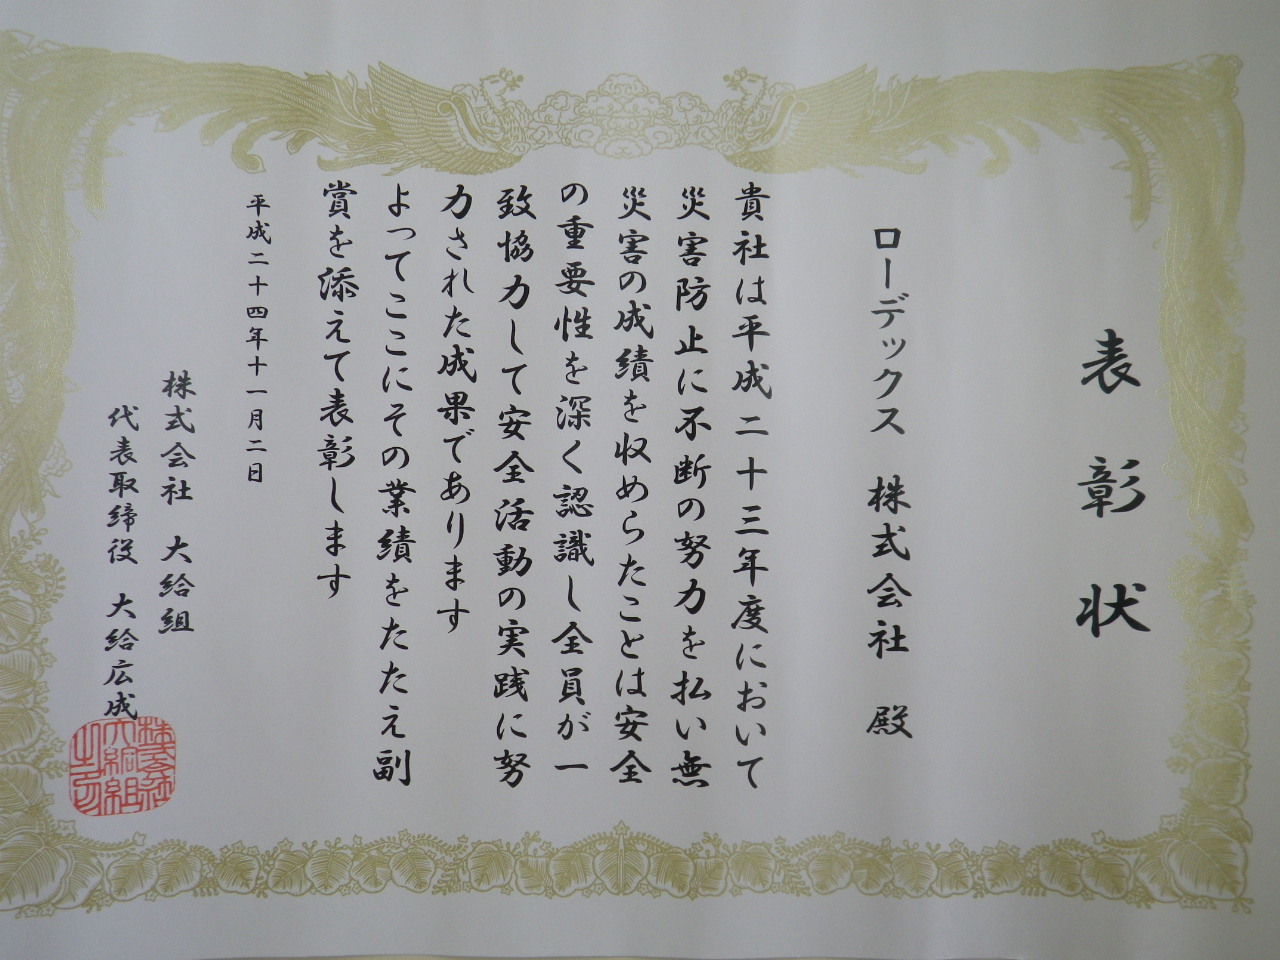 表彰状
ローデックス 株式会社 殿
貴社は平成二十三年度において
災害防止に不断の努力を払い無
災害の成績を収めらたことは安全
の重要性を深く認識し全員が一
致協力して安全活動の実践に努
力された成果であります
よってここにその業績をたたえ副
賞を添えて表彰します
平成二十四年十一月二日
株式会社 大給組
代表取締役 大給広成